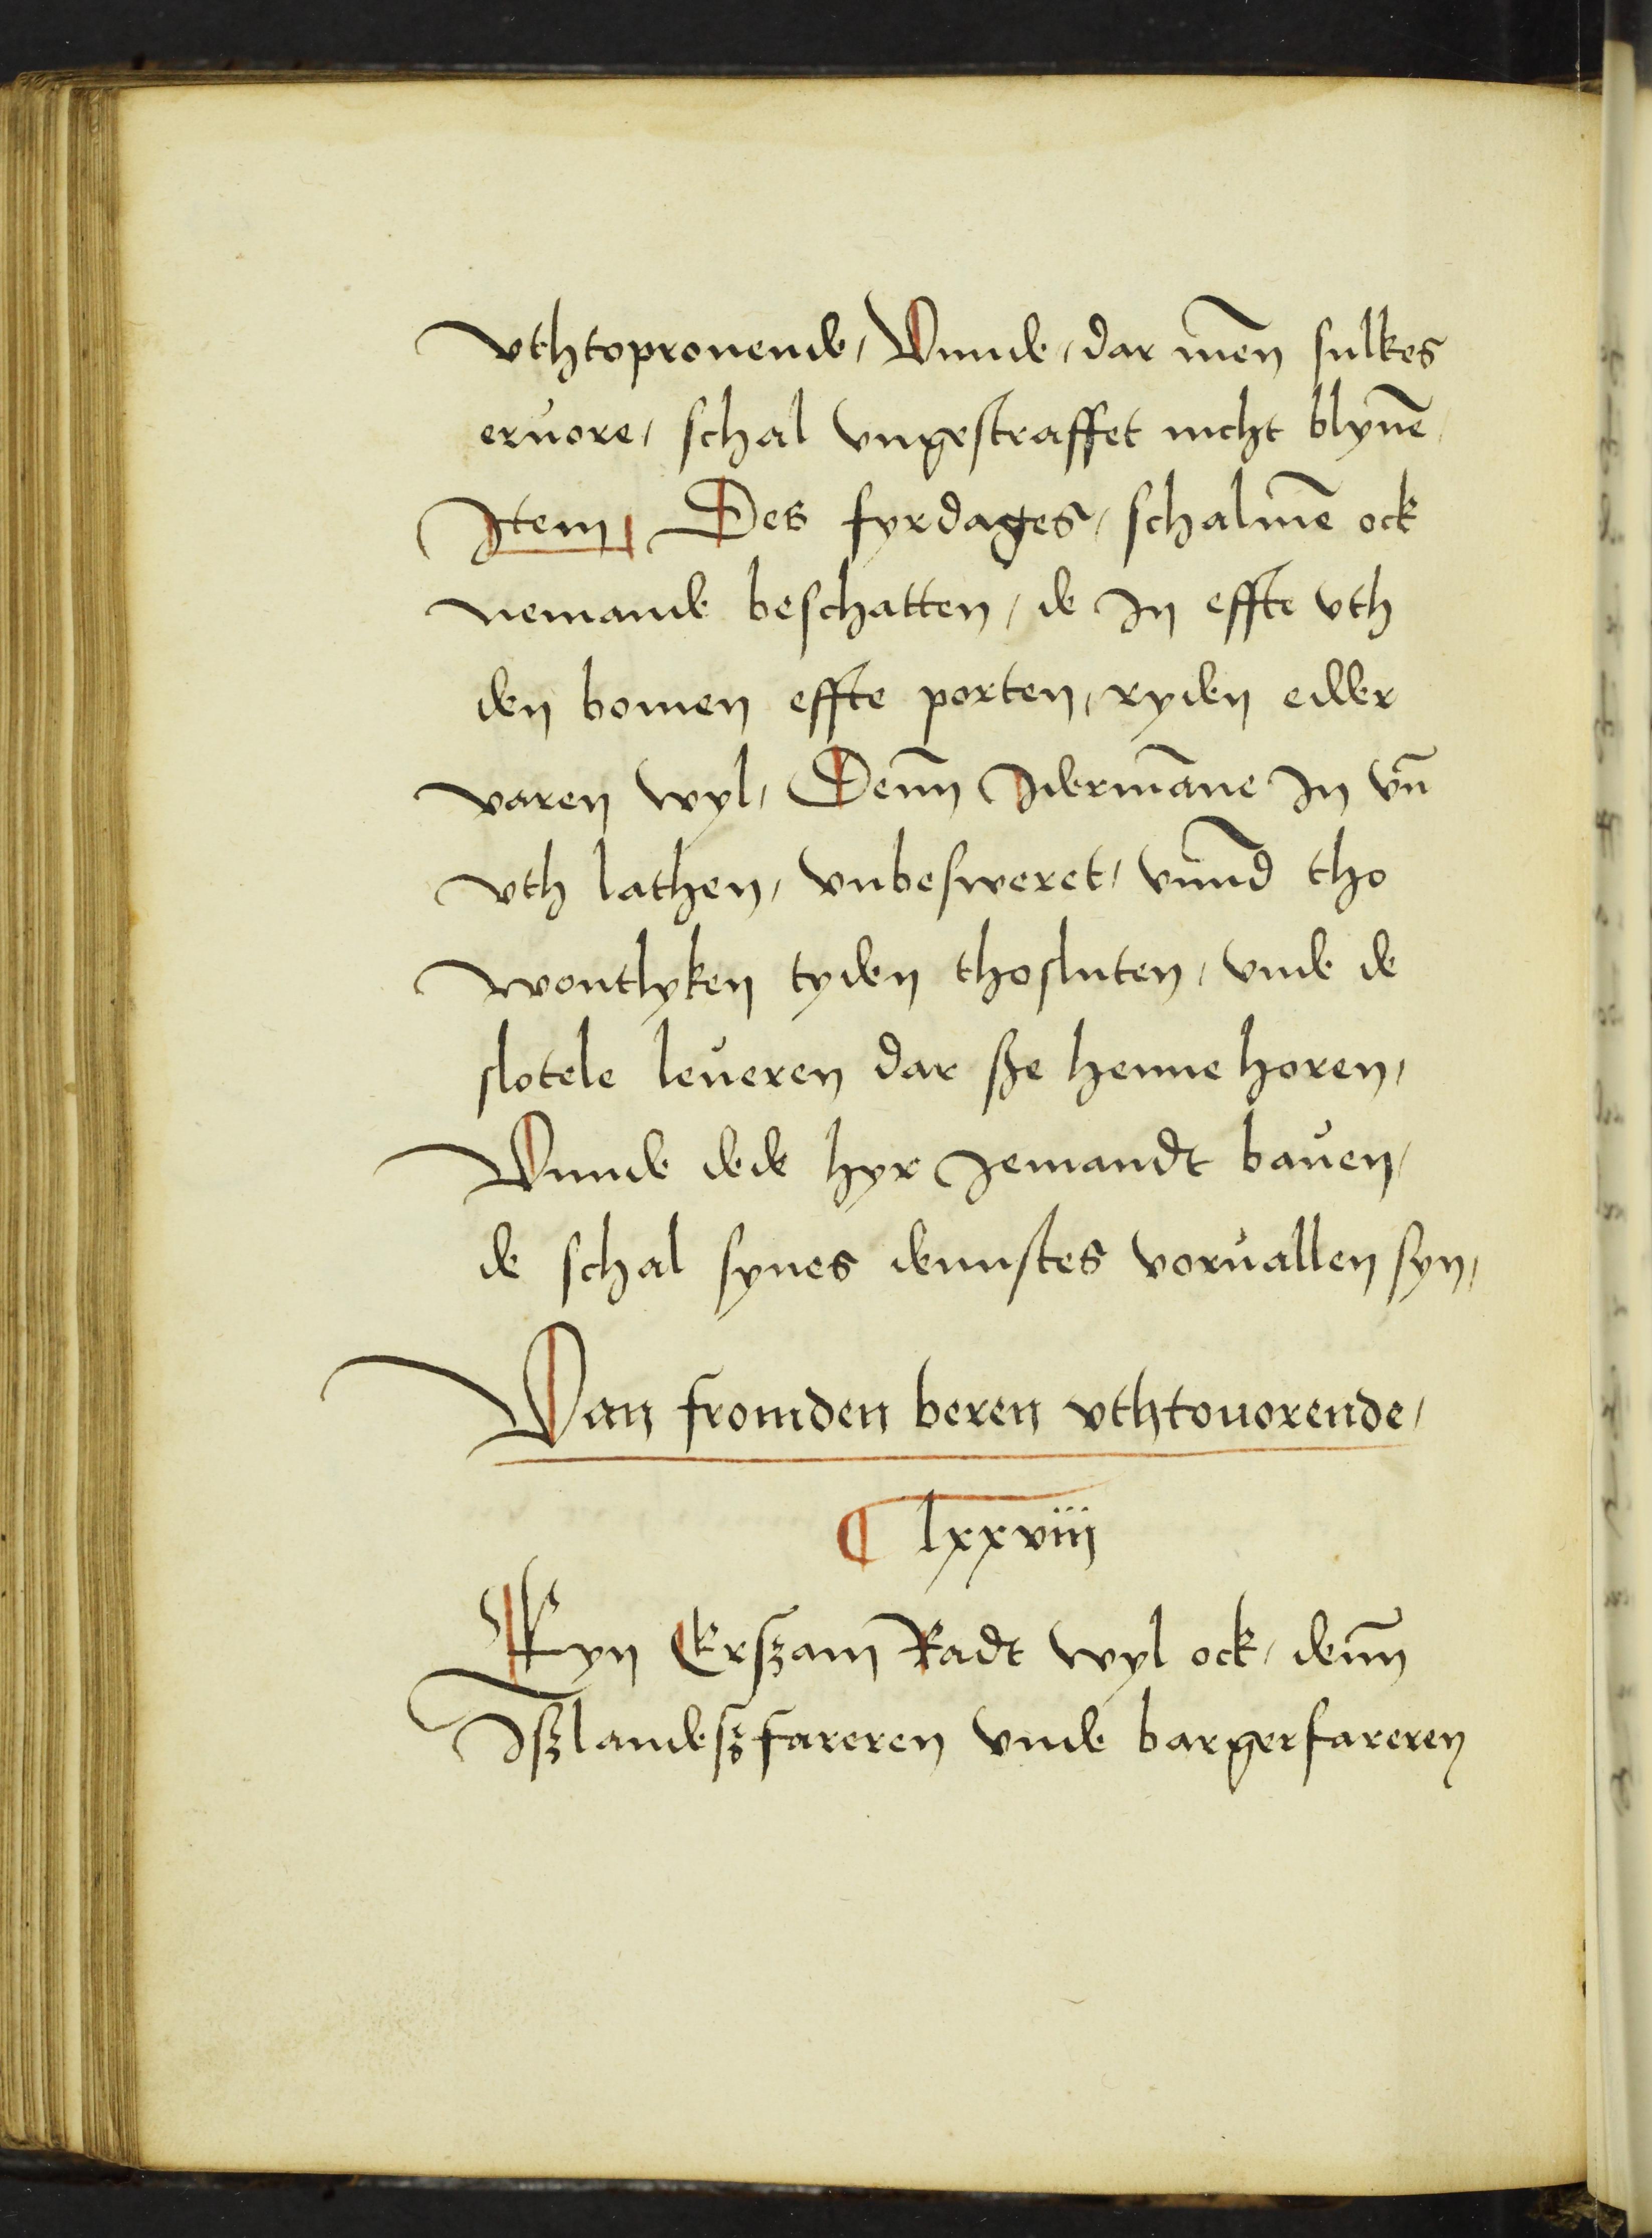 vthtoprouende, Vnnde, dar men̄ sulkes
eruore, schal vngestraffet nicht blyuē,
Item, Des fyrdages, schalmē ock
nemande beschatten, de In effte vth
den bomen effte porten, ryden edder
varen wyl, Den̄n Idermāne In vn̄
vth lathen, vnbesweret, vnnd̄ tho
wontlyken tyden thosluten, vnde de
slotele leueren dar sze henne horen,
Vnnde dede hyr Jemandt bauen,
de schal synes dennstes voruallen syn,
Van fromden beren vthtouorende,
¶ lxxviiij
Eyn Erszam Radt wyl ock, den̄n
Iszlandeszfareren vnde bargerfareren